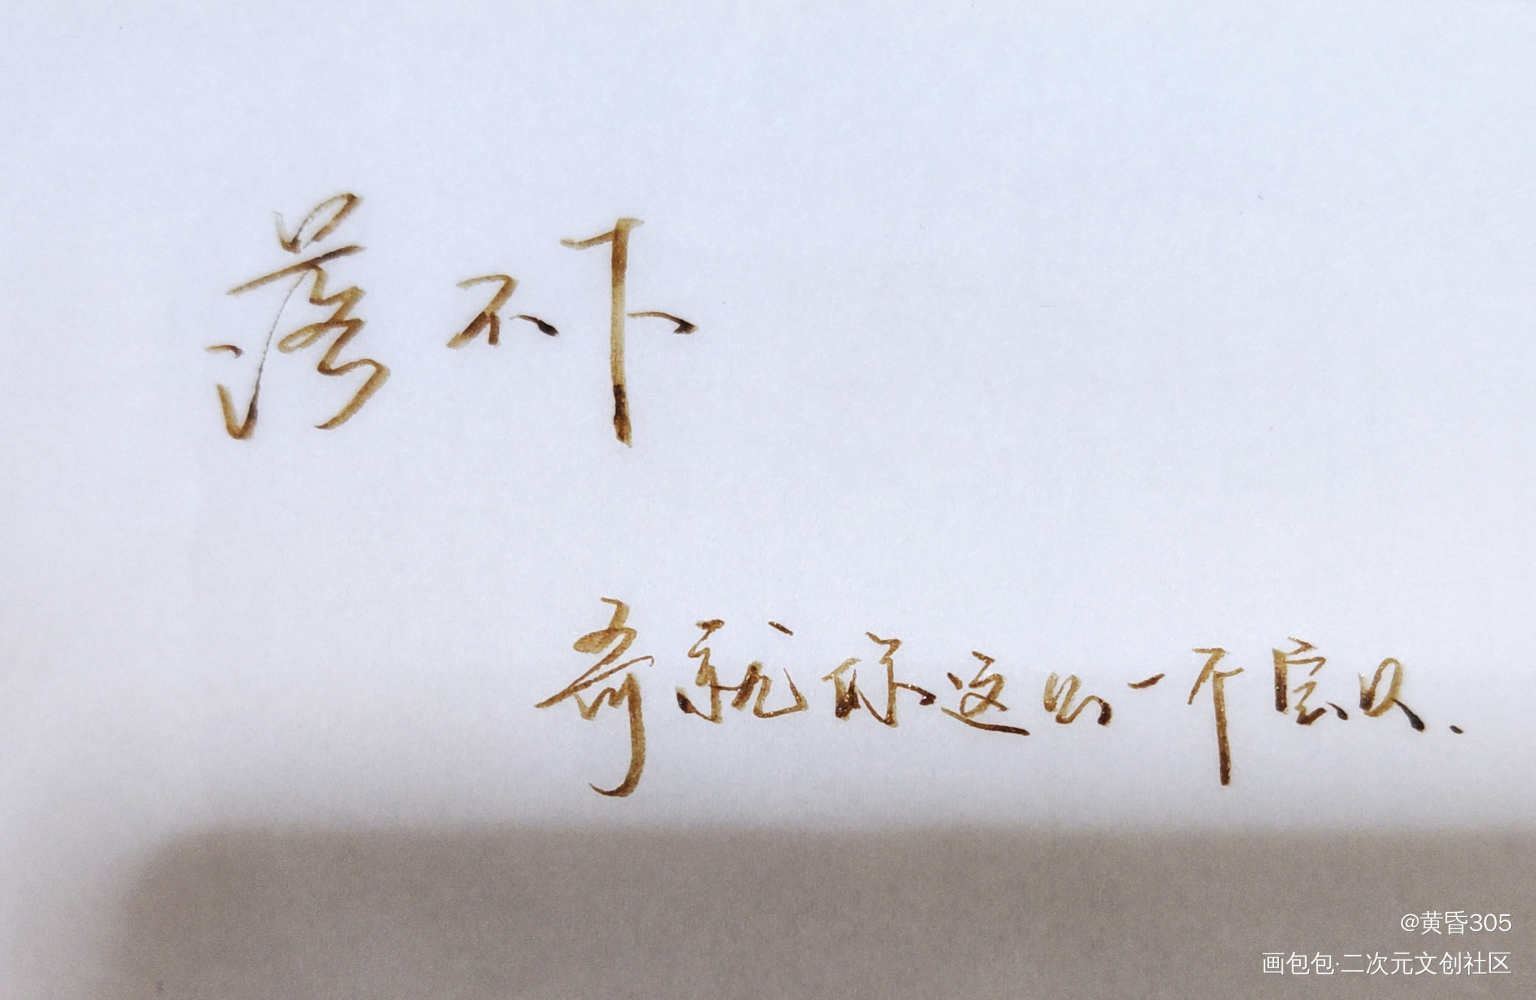 落不下
就你这么一个宝贝.
@黄昏305
画包包·二次元文创社区